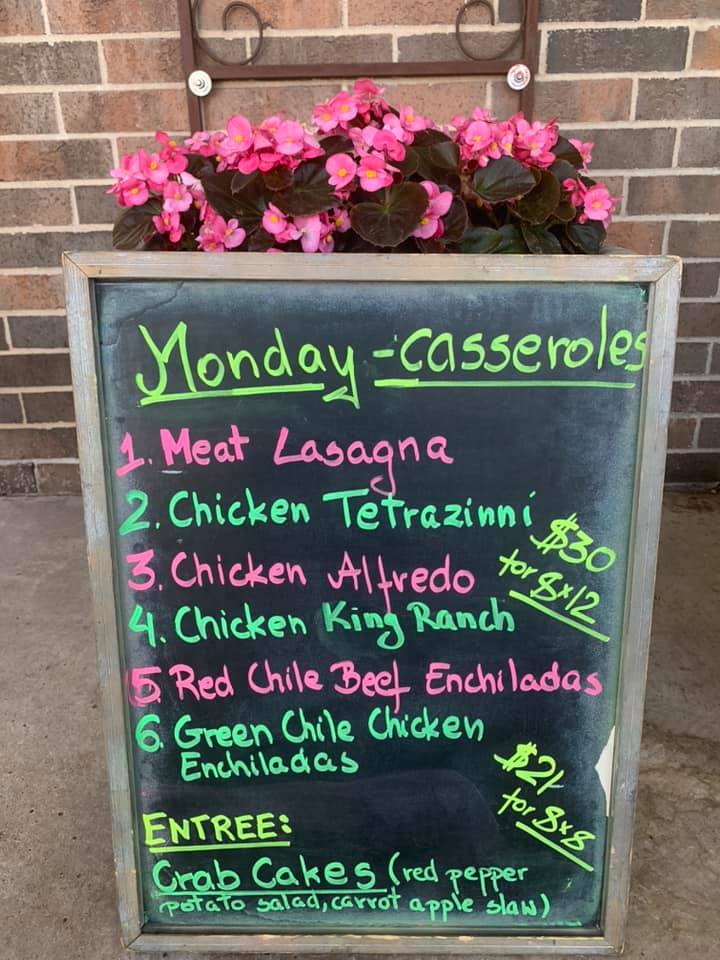 Monday - Casseroles
1. Meat Lasagna
2. Chicken Tetrazinni
$30
for 8x12
3. Chicken Alfredo
4. Chicken King Ranch
5 Red Chile Beef Enchiladas
6. Green Chile Chicken
Enchiladas
$21
for 8x8
ENTREE:
Crab Cakes (red pepper
potato salad, carrot apple slaw)